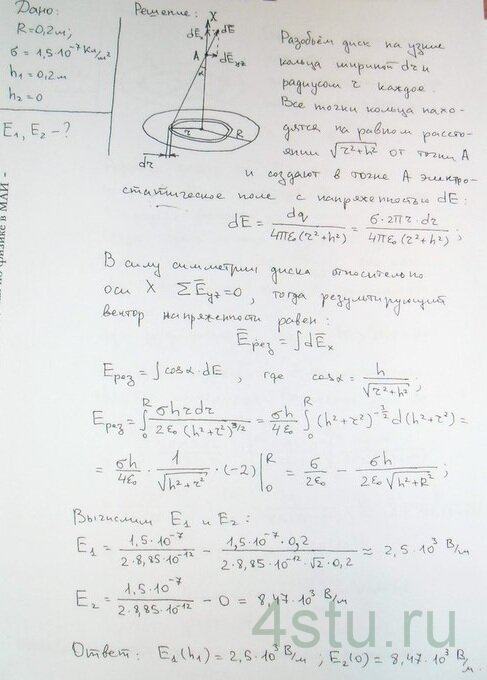 Дано:
R=0,2м;
σ = 1,5·10⁻⁷ Кл/м²
h₁ = 0,2м
h₂ = 0
E₁, E₂ - ?
Решение:
X
dEₓ dE
A dE_yz
α
r R
dr
Разобьём диск на узкие
кольца шириной dr и
радиусом r каждое.
Все точки кольца нахо-
дятся на равном рассто-
янии √(r²+h²) от точки A
и создают в точке A электро-
статическое поле с напряженностью dE:
dE = dq/(4πε₀(r²+h²)) = σ·2πr·dr/(4πε₀(r²+h²));
В силу симметрии диска относительно
оси X ΣĒ_yz=0, тогда результирующий
вектор напряженности равен:
Ē_рез = ∫dĒₓ
E_рез = ∫cosα·dE, где cosα = h/√(r²+h²);
E_рез = ∫₀ᴿ σhrdr/(2ε₀(h²+r²)^(3/2)) = σh/(4ε₀) ∫₀ᴿ (h²+r²)^(-3/2) d(h²+r²) =
= σh/(4ε₀) · 1/√(h²+r²) · (-2) |₀ᴿ = σ/(2ε₀) - σh/(2ε₀√(h²+R²));
Вычислим E₁ и E₂:
E₁ = 1,5·10⁻⁷/(2·8,85·10⁻¹²) - 1,5·10⁻⁷·0,2/(2·8,85·10⁻¹²·√2·0,2) ≈ 2,5·10³ В/м
E₂ = 1,5·10⁻⁷/(2·8,85·10⁻¹²) - 0 = 8,47·10³ В/м
Ответ: E₁(h₁) = 2,5·10³ В/м; E₂(0) = 8,47·10³ В/м.
4stu.ru
по физике в МАИ -